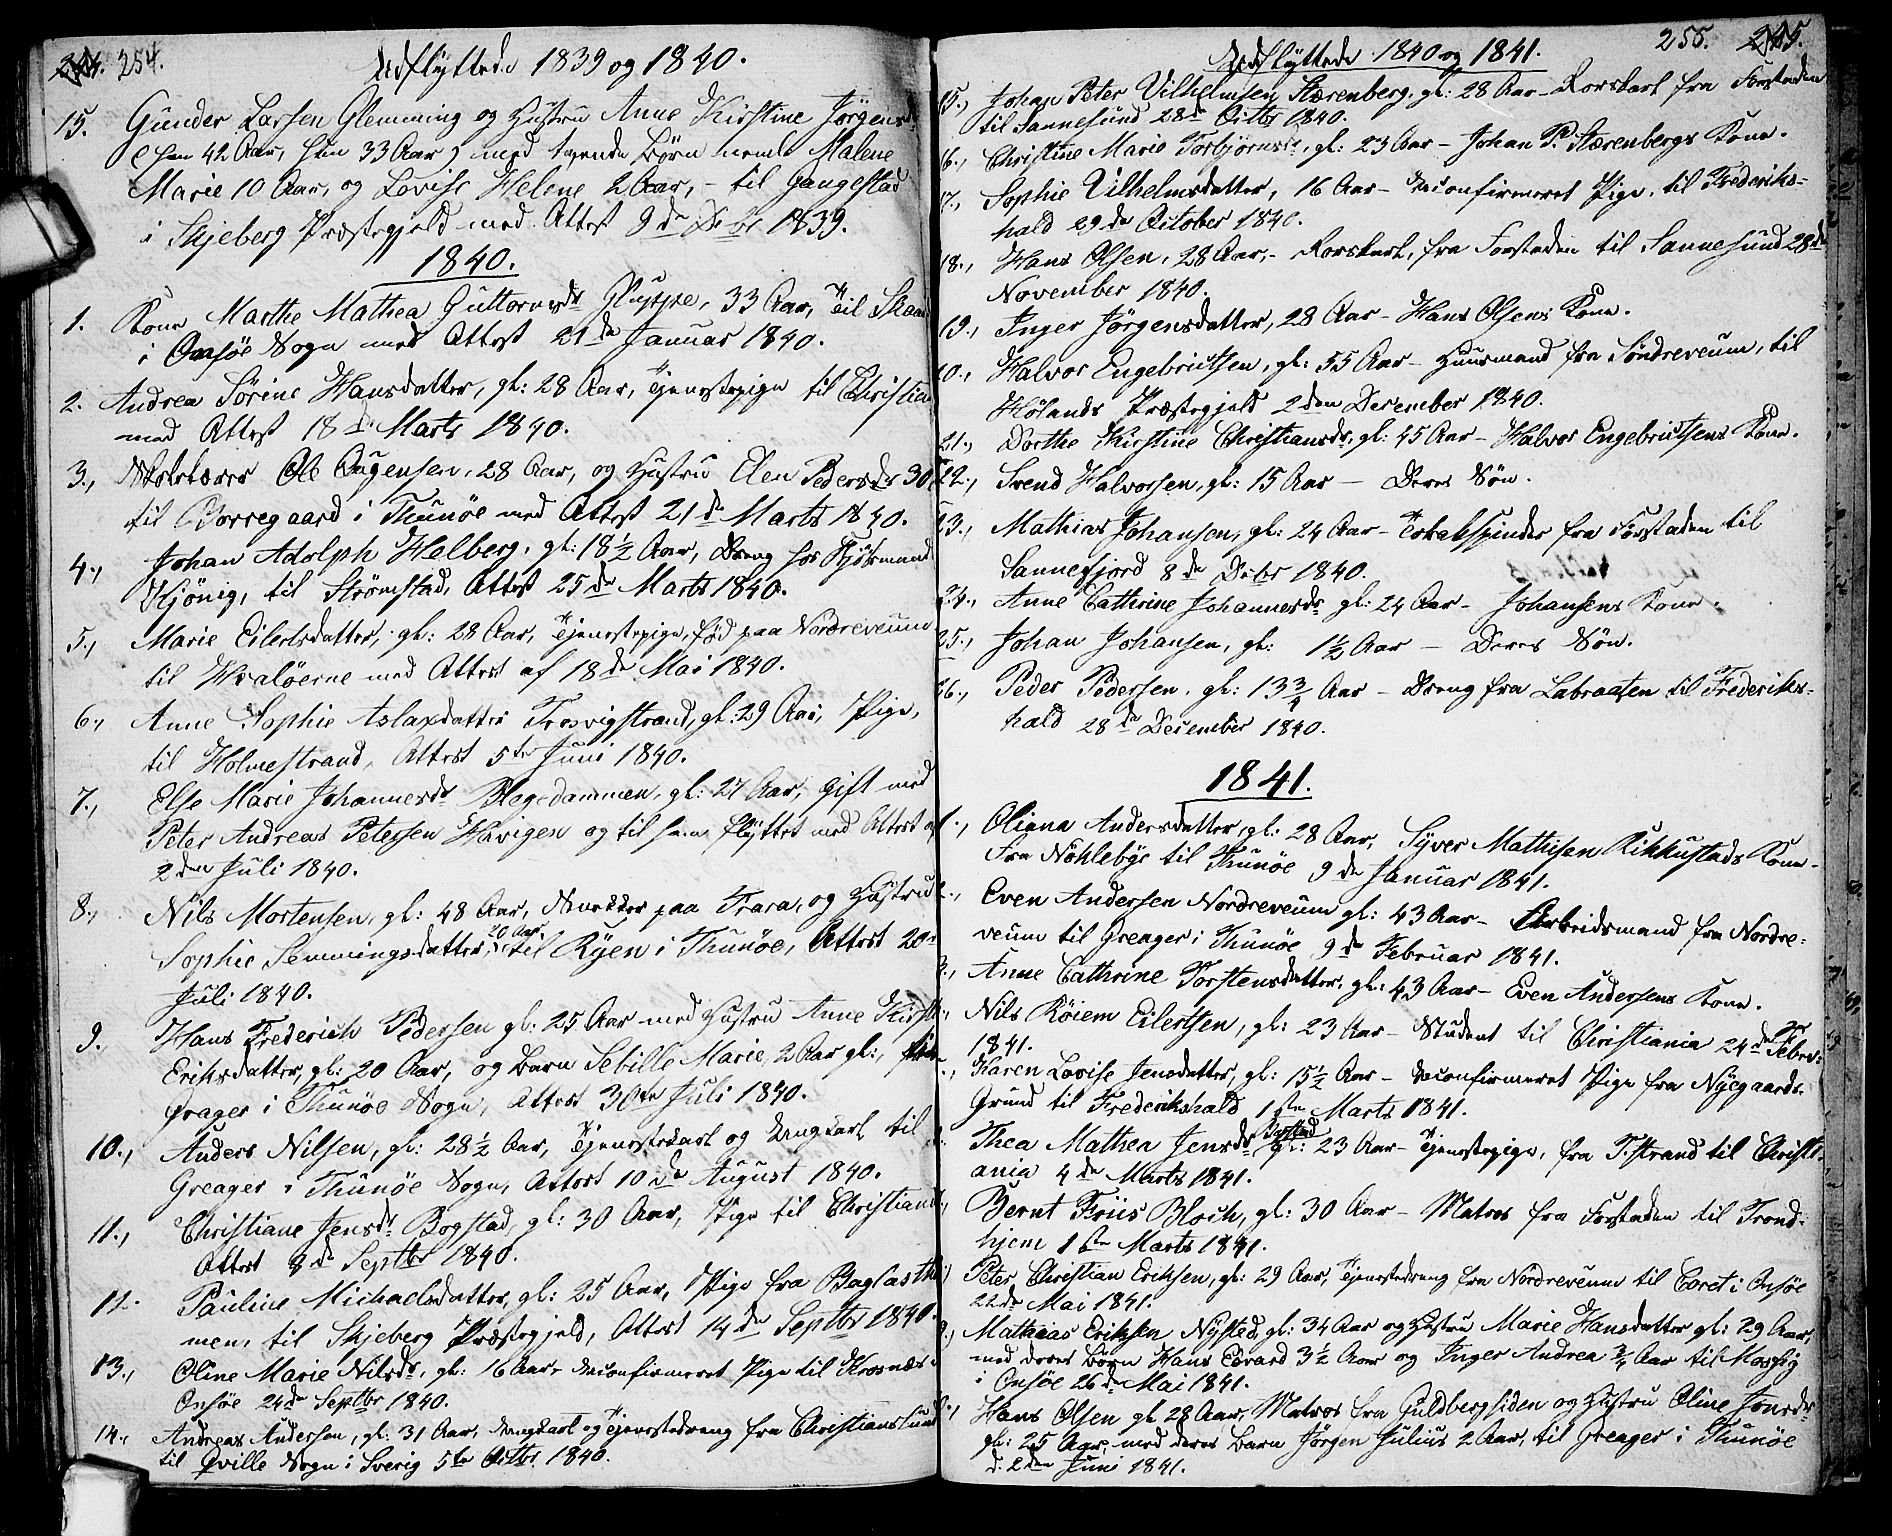 254.
Udflyttede 1839 og 1840.
15. Gunder Larsen Glemming og Hustru Anne Kirstine Jörgensd:
(han 42 Aar, hun 33 Aar) med tvende Börn neml: Malene
Marie 10 Aar, og Lovise Helene 2 Aar, – til Gangestad
i Skjeberg Præstegjeld med Attest 9de Decbr 1839.
1840.
1. Kone Marthe Mathea Guttormsdr Gluppe, 33 Aar, til
i Onsöe Sogn med Attest 21de Januar 1840.
2. Andrea Sörine Hansdatter, gl: 28 Aar, Tjenestepige til Christian
med Attest 18de Marts 1840.
3., Ole Aagensen, 28 Aar, og Hustru Elen Pedersdr 30
til Borregaard i Thunöe med Attest 21de Marts 1840.
4., Johan Adolph Walberg, gl: 18½ Aar, Dreng hos Kjöbmand
Kjönig, til Strömstad, Attest 25de Marts 1840.
5., Marie Eilertsdatter, gl: 28 Aar, Tjenestepige, född paa Nordreveum
til Hvalöerne med Attest af 18de Mai 1840.
6., Anne Sophie Aslaxdatter Trosvigstrand, gl: 29 Aar, Pige,
til Holmestrand, Attest 5te Juni 1840.
7., Else Marie Johannesdr Blegedammen, gl: 27 Aar, gift med
Peter Andreas Petersen Havigen og til ham flyttet med Attest af
2den Juli 1840.
8., Nils Mortensen, gl: 48 Aar, paa Trara, og Hustru
Sophie Semmingsdatter, 20 Aar, til Ryen i Thunöe, Attest 20de
Juli 1840.
9. Hans Frederich Pedersen gl: 25 Aar med Hustru Anne Kirst
Eriksdatter, gl: 20 Aar, og Barn Sebille Marie, 2 Aar gl:,
Grager i Thunöe Sogn, Attest 30te Juli 1840.
10., Anders Nilsen, gl: 28½ Aar, Tjenestekarl og Ungkarl til
Greager i Thunöe Sogn, Attest 10de August 1840.
11., Christiane Jensdr Bogstad, gl: 30 Aar, Pige til Christiania
Attest 8de Septbr 1840.
12. Pauline Michaelsdatter, gl: 25 Aar, Pige fra
men, til Skjeberg Præstegjeld, Attest 14de Septbr 1840.
13., Oline Marie Nilsdr, gl: 16 Aar, Reconfirmeret Pige til Krosnæs i
Onsöe 24de Septbr 1840.
14., Andreas Andersen, gl: 31 Aar, Ungkarl og Tjenestedreng fra Christianssund
til Qville Sogn i Sverig 5te Octbr 1840.
255.
Udflyttede 1840 og 1841.
15., Johan Peter Vilhelmsen Stærenberg, gl: 28 Aar – Rorskarl fra Forstaden
til Sannesund 28de Octbr 1840.
16., Christine Marie Torbjörnsdr, gl: 23 Aar – Johan P. Stærenbergs Kone.
17., Sophie Vilhelmsdatter, 16 Aar – Reconfirmeret Pige, til Frederiks-
hald 29de October 1840.
18., Hans Olsen, 28 Aar, – Rorskarl, fra Forstaden til Sannesund 28de
November 1840.
19., Inger Jörgensdatter, 28 Aar – Hans Olsens Kone.
20., Halvor Engebrictsen, gl: 55 Aar – Huusmand fra Söndreveum, til
Hölands Præstegjeld 2den December 1840.
21., Dorthe Kirstine Christiansdr, gl: 45 Aar – Halvor Engebrictsens Kone.
22., Svend Halvorsen, gl: 15 Aar – Deres Sön.
23., Mathias Johansen, gl: 24 Aar – Tobakspinder fra Forstaden til
Sannefjord 8de Decbr 1840.
24., Anne Cathrine Johannesdr gl: 24 Aar – Johansens Kone.
25., Johan Johansen, gl: 1½ Aar – Deres Sön.
26., Peder Pedersen, gl: 13¾ Aar – Dreng fra Labraaten til Frederiks-
hald 28de December 1840.
1841.
1., Oliana Andersdatter, gl: 28 Aar, Syver Mathisen Rikkustads Kone –
fra Nöhlebye til Thunöe 9de Januar 1841.
2., Even Andersen Nordreveum gl: 43 Aar – Arbeidsmand fra Nordre-
veum til Greager i Thunöe 9de Februar 1841.
3., Anne Cathrine Torstensdatter, gl: 43 Aar – Even Andersens Kone.
Nils Röiem Eilertsen, gl: 23 Aar – Student til Christiania 24de Febr:
1841.
Karen Lovise Jensdatter, gl: 15½ Aar – Reconfirmeret Pige fra Nyegaards-
Grund til Frederikshald 1ste Marts 1841.
Thea Mathea Jensdr Bogstad, gl: 23 Aar – Tjenestepige, fra T.strand til Christi-
ania 4de Marts 1841.
Bernt Friis Bloch, gl: 30 Aar – Matros fra Forstaden til Trond-
hjem 1ste Marts 1841.
Peter Christian Eriksen, gl: 29 Aar, Tjenestedreng fra Nordreveum til i Onsöe
22de Mai 1841.
9., Mathias Eriksen Nysted, gl: 34 Aar og Hustru Marie Hansdatter gl: 29 Aar,
med deres Börn Hans Edvard 3½ Aar og Inger Andrea ¾ Aar til Mossig
i Onsöe 26de Mai 1841.
Hans Olsen gl 28 Aar, Matros fra Guldbergsiden og Hustru Oline Jonsdr
gl: 25 Aar, med deres Barn Jörgen Julius 2 Aar, til Greager i Thunöe
d: 2den Juni 1841.